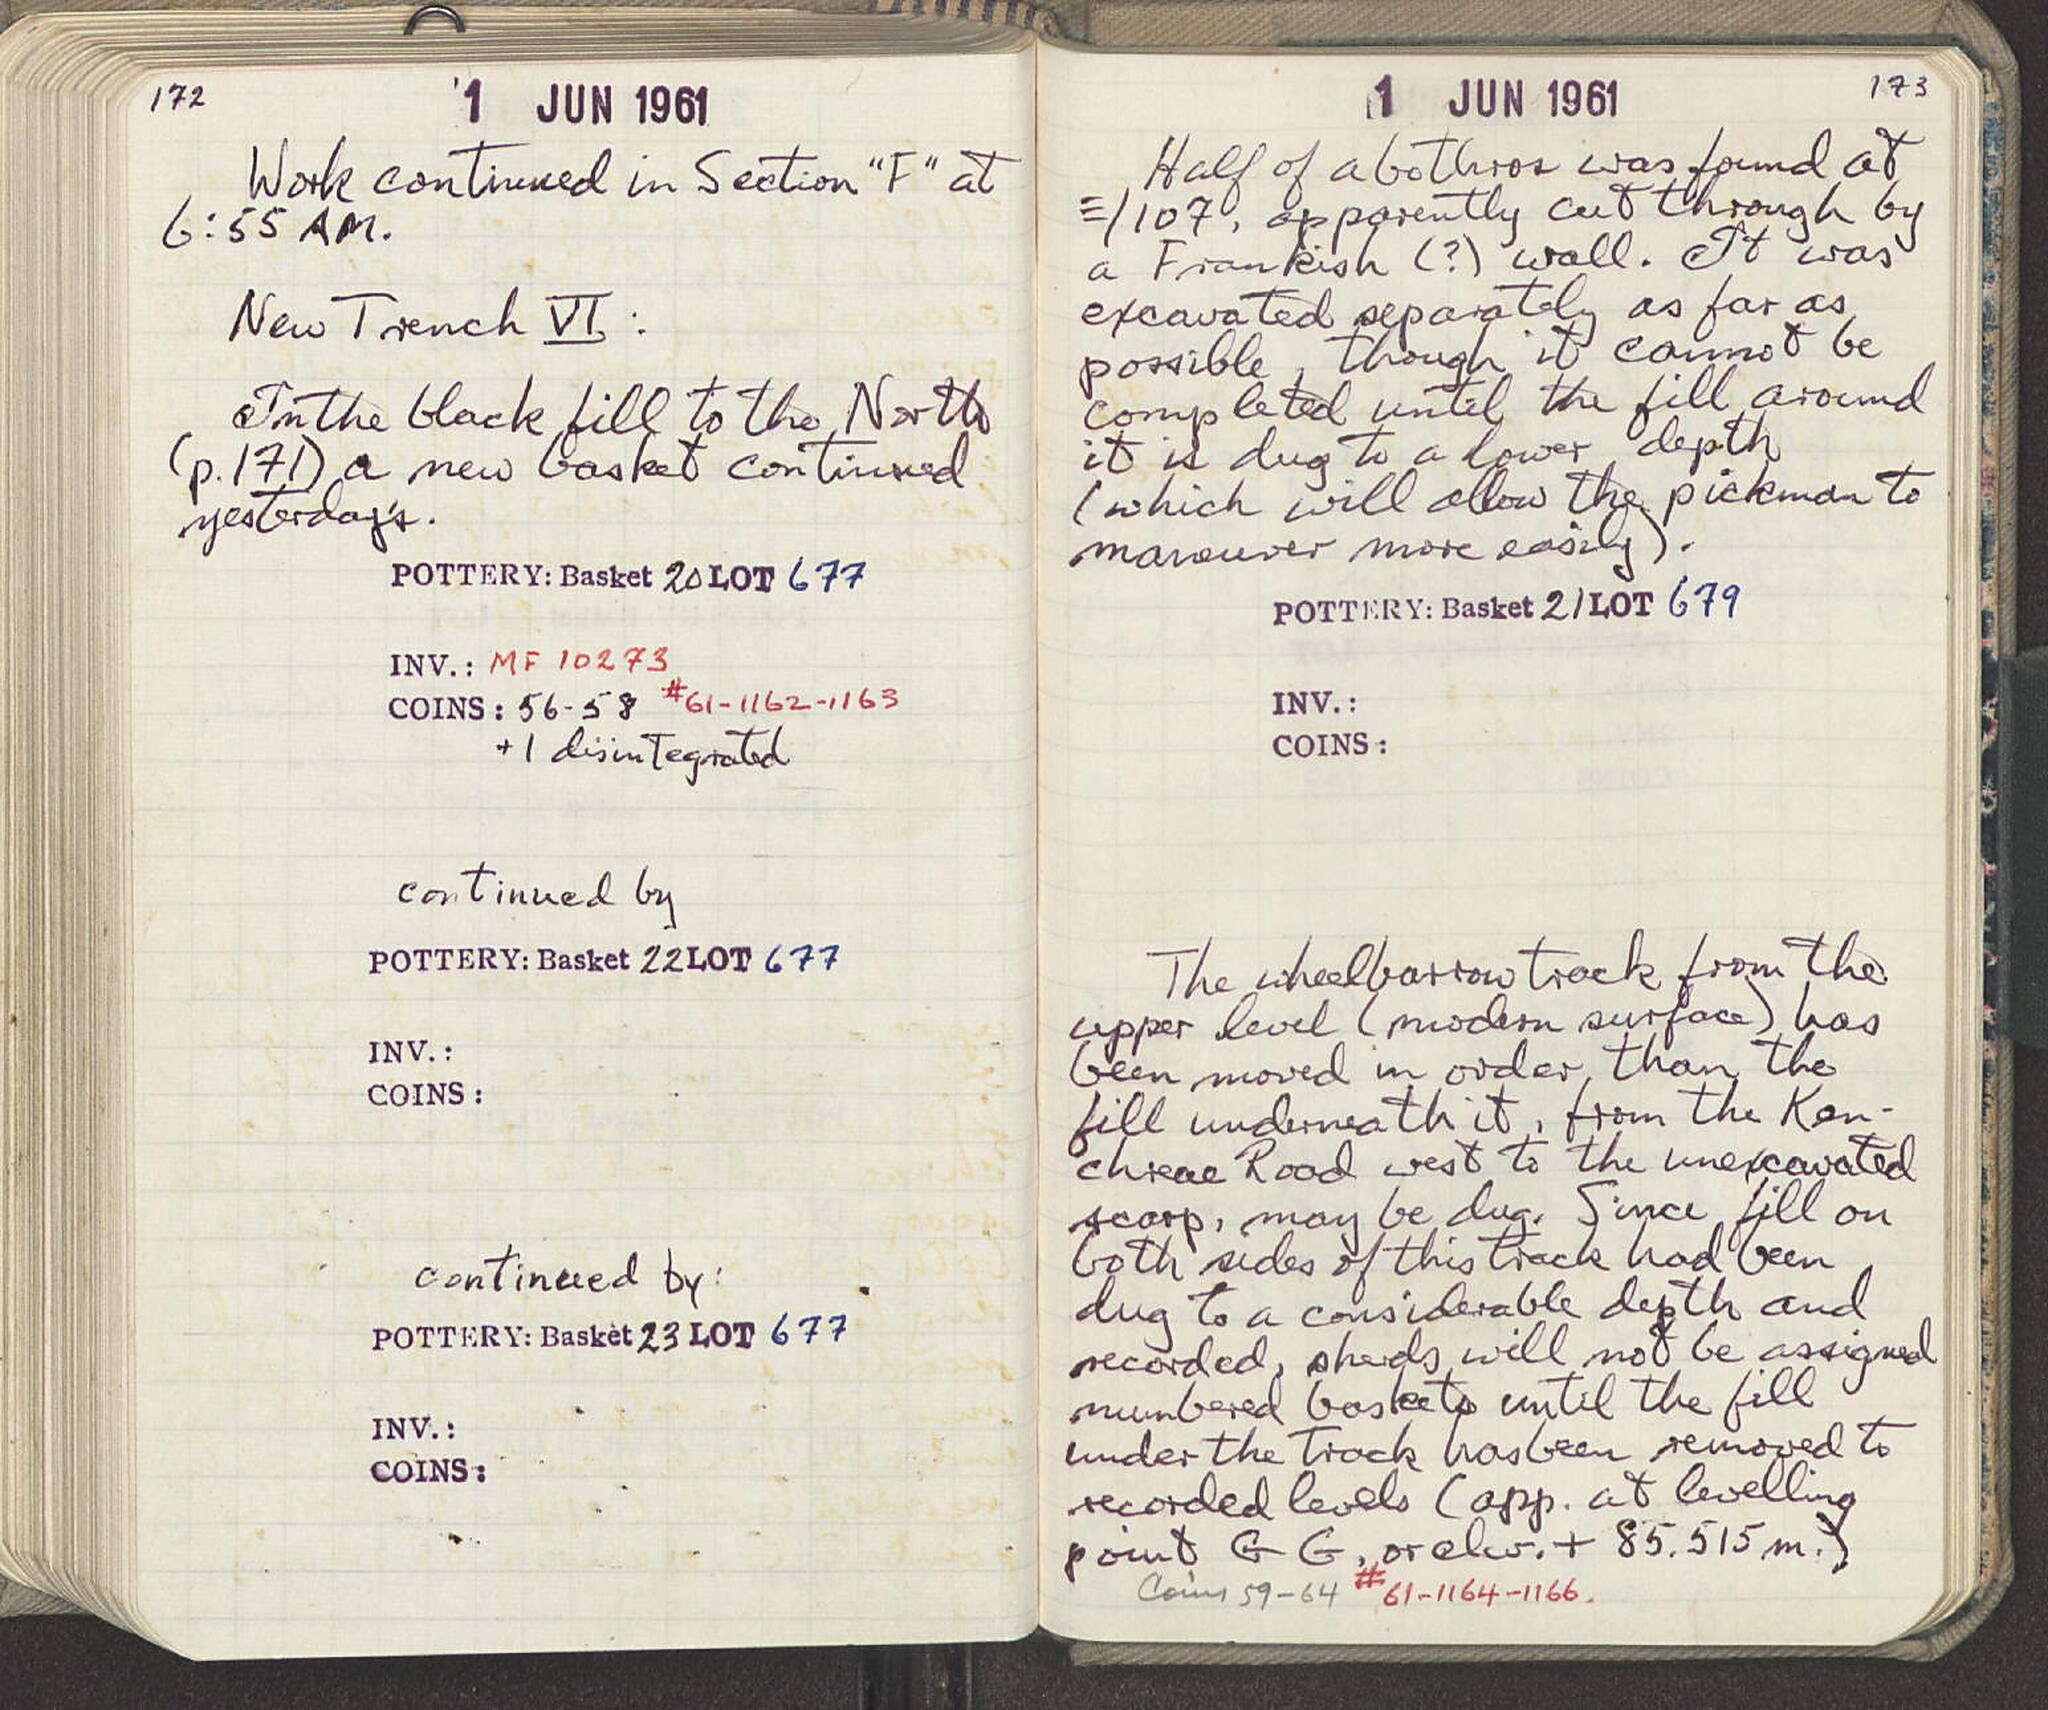 172
1 JUN 1961
Work continued in Section "F" at
6:55 AM.
New Trench VI:
In the black fill to the North
(p.171) a new basket continued
yesterday's.
POTTERY: Basket 20 LOT 677
INV.: MF 10273
COINS: 56-58 #61-1162-1163
+1 disintegrated
continued by
POTTERY: Basket 22 LOT 677
INV.:
COINS:
continued by:
POTTERY: Basket 23 LOT 677
INV.:
COINS:
173
1 JUN 1961
Half of a bothros was found at
Ξ/107, apparently cut through by
a Frankish (?) wall. It was
excavated separately as far as
possible, though it cannot be
completed until the fill around
it is dug to a lower depth
(which will allow the pickman to
maneuver more easily).
POTTERY: Basket 21 LOT 679
INV.:
COINS:
The wheelbarrow track from the
upper level (modern surface) has
been moved in order than the
fill underneath it, from the Ken-
chreae Road west to the unexcavated
scarp, may be dug. Since fill on
both sides of this track had been
dug to a considerable depth and
recorded, sherds will not be assigned
numbered baskets until the fill
under the track has been removed to
recorded levels (app. at levelling
point GG, or elev. + 85.515 m.)
Coins 59-64 #61-1164-1166.